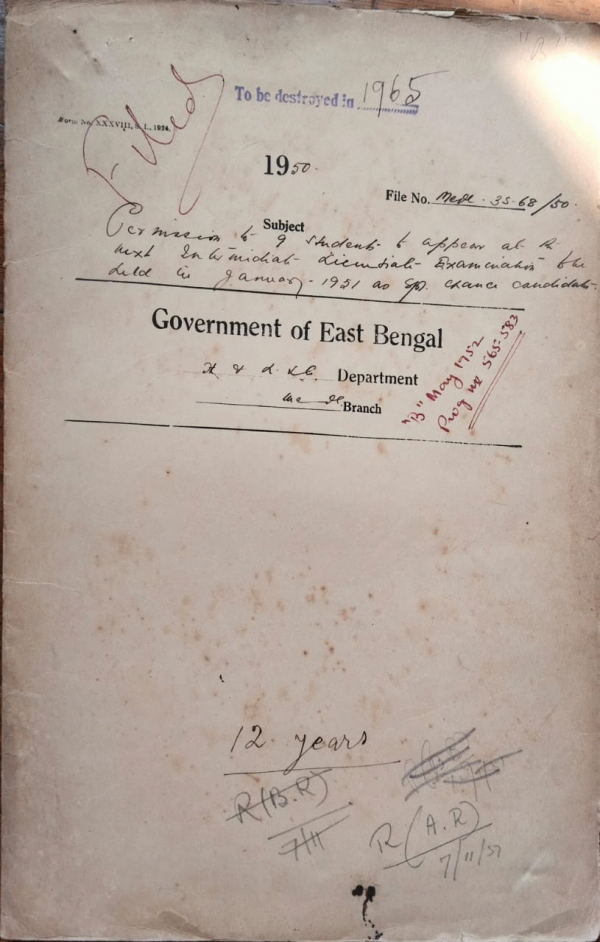 "B"
Filed
To be destroyed in 1965
Form No. XXXVIII, L., 1924.
1950.
File No. Medl. 3S-68/50.
Subject
Permission to 9 students to appear at the
next Intermediate Licentiate Examination to be
held in January-1951 as Sp. chance candidates.
Government of East Bengal
Department
Medl Branch
"B" May 1952
Prog ns 565-583
12 years
R(B.R)
7/11
R(A.R)
7/11/51